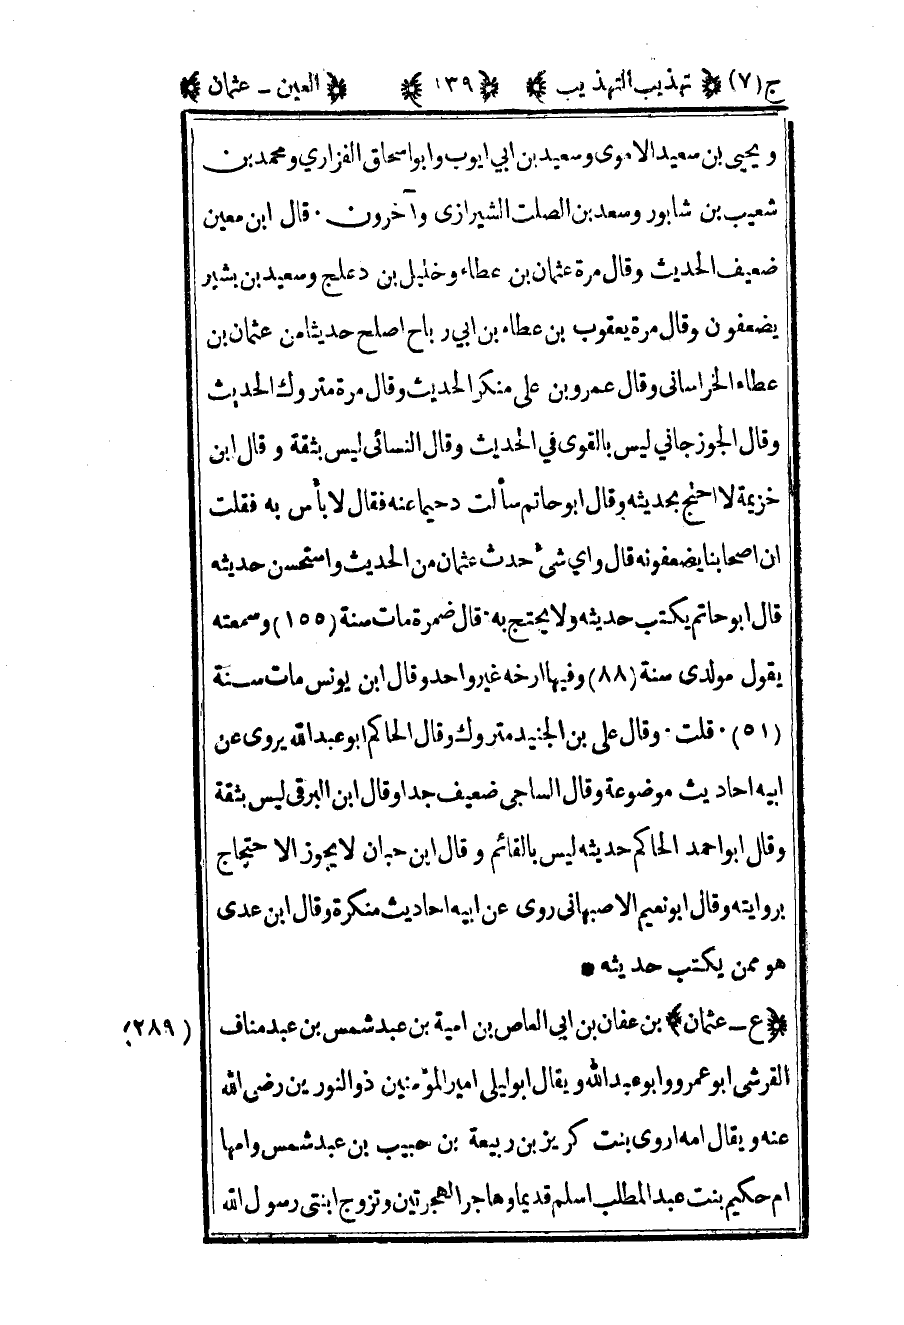 ج (٧) ﴿ تهذيب التهذيب ﴾ ﴿ ١٣٩ ﴾ ﴿ العين ـ عثمان ﴾
و يحيى بن سعيد الاموى وسعيد بن ابي ايوب وابواسحاق الفزاري ومحمد بن
شعيب بن شابور وسعد بن الصلت الشيرازى وآخرون ٠ قال ابن معين
ضعيف الحديث وقال مرة عثمان بن عطاء وخليل بن دعلج وسعيد بن بشير
يضعفون وقال مرة يعقوب بن عطاء بن ابي رباح اصلح حديثا من عثمان بن
عطاء الخراسانى وقال عمرو بن على منكر الحديث وقال مرة متروك الحديث
وقال الجوزجاني ليس بالقوى في الحديث وقال النسائى ليس بثقة و قال ابن
خزيمة لا احتج بحديثه وقال ابوحاتم سألت دحيما عنه فقال لا بأس به فقلت
ان اصحابنا يضعفونه قال واي شئ حدث عثمان من الحديث واستحسن حديثه
قال ابوحاتم يكتب حديثه ولا يحتج به ٠ قال ضمرة مات سنة (١٥٥) وسمعته
يقول مولدى سنة (٨٨) وفيها ارخه غير واحد وقال ابن يونس مات سنة
(٥١) ٠ قلت ٠ وقال على بن الجنيد متروك وقال الحاكم ابو عبد الله يروى عن
ابيه احاديث موضوعة وقال الساجى ضعيف جدا وقال ابن البرقى ليس بثقة
وقال ابو احمد الحاكم حديثه ليس بالقائم و قال ابن حبان لا يجوز الاحتجاج
بروايته وقال ابو نعيم الاصبهانى روى عن ابيه احاديث منكرة وقال ابن عدى
هو ممن يكتب حديثه ●
﴿ ع ـ عثمان ﴾ بن عفان بن ابي العاص بن امية بن عبد شمس بن عبد مناف (٢٨٩)
القرشى ابو عمرو وابو عبد الله و يقال ابو ليلى امير المؤمنين ذو النورين رضى الله
عنه و يقال امه اروى بنت كريز بن ربيعة بن حبيب بن عبد شمس وامها
ام حكيم بنت عبد المطلب اسلم قديما وهاجر الهجرتين وتزوج ابنتى رسول الله